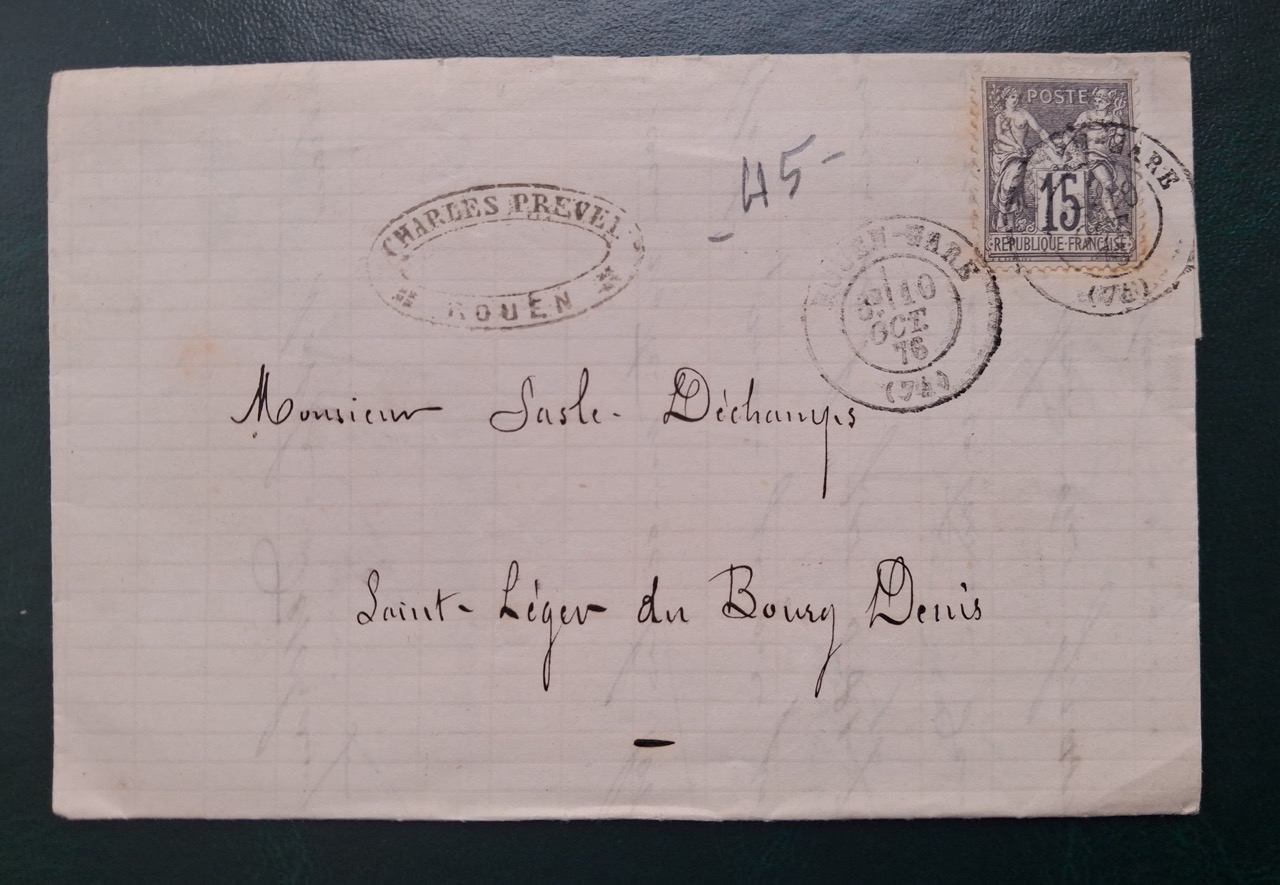 POSTE
15
REPUBLIQUE FRANÇAISE
GARE
(75)
CHARLES PREVEL
ROUEN
45-
ROUEN-GARE
10
OCT.
76
(74)
Monsieur Sasle-Déchamps
Saint-Léger du Bourg Denis